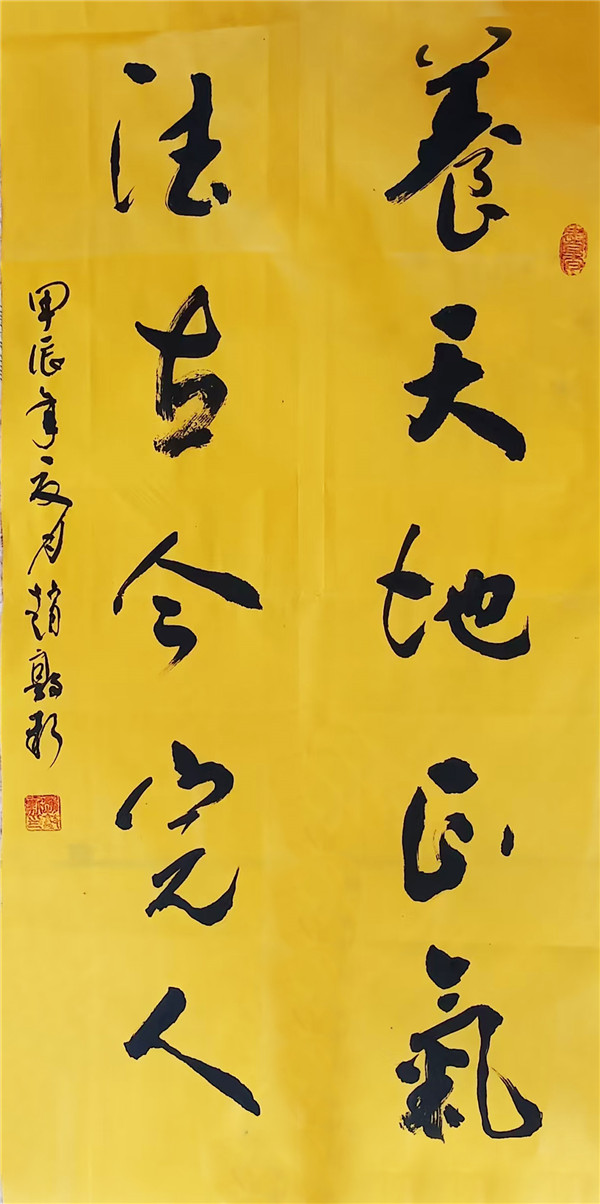 養天地正氣
法古今完人
甲辰年夏月趙敦彩